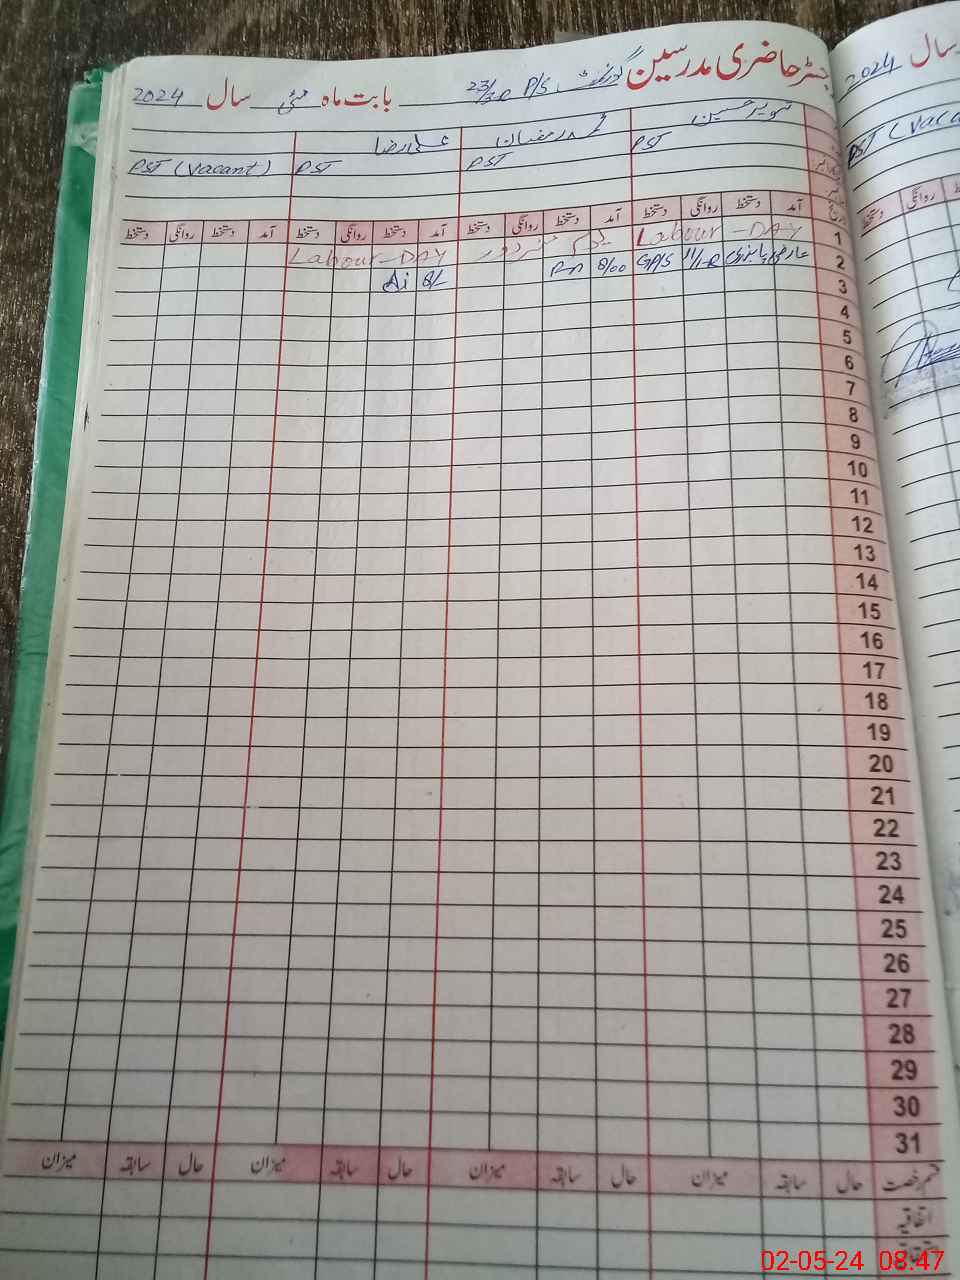 رجسٹر حاضری مدرسین گورنمنٹ P/S 23/2-R بابت ماہ مئی سال 2024
تنویر حسین محمد رمضان علی رضا
PST PST PST PST (Vacant)
آمد دستخط روانگی دستخط آمد دستخط روانگی دستخط آمد دستخط روانگی دستخط آمد دستخط روانگی دستخط
1 Labour - DAY یکم Labour - DAY
2 عارضی GP/S 11/1-R 8/00 8/-
3
4
5
6
7
8
9
10
11
12
13
14
15
16
17
18
19
20
21
22
23
24
25
26
27
28
29
30
31
قسم رخصت حال سابقہ میزان حال سابقہ میزان حال سابقہ میزان حال سابقہ میزان
اتفاقیہ
سال 2024
PST
روانگی دستخط
02-05-24 08:47